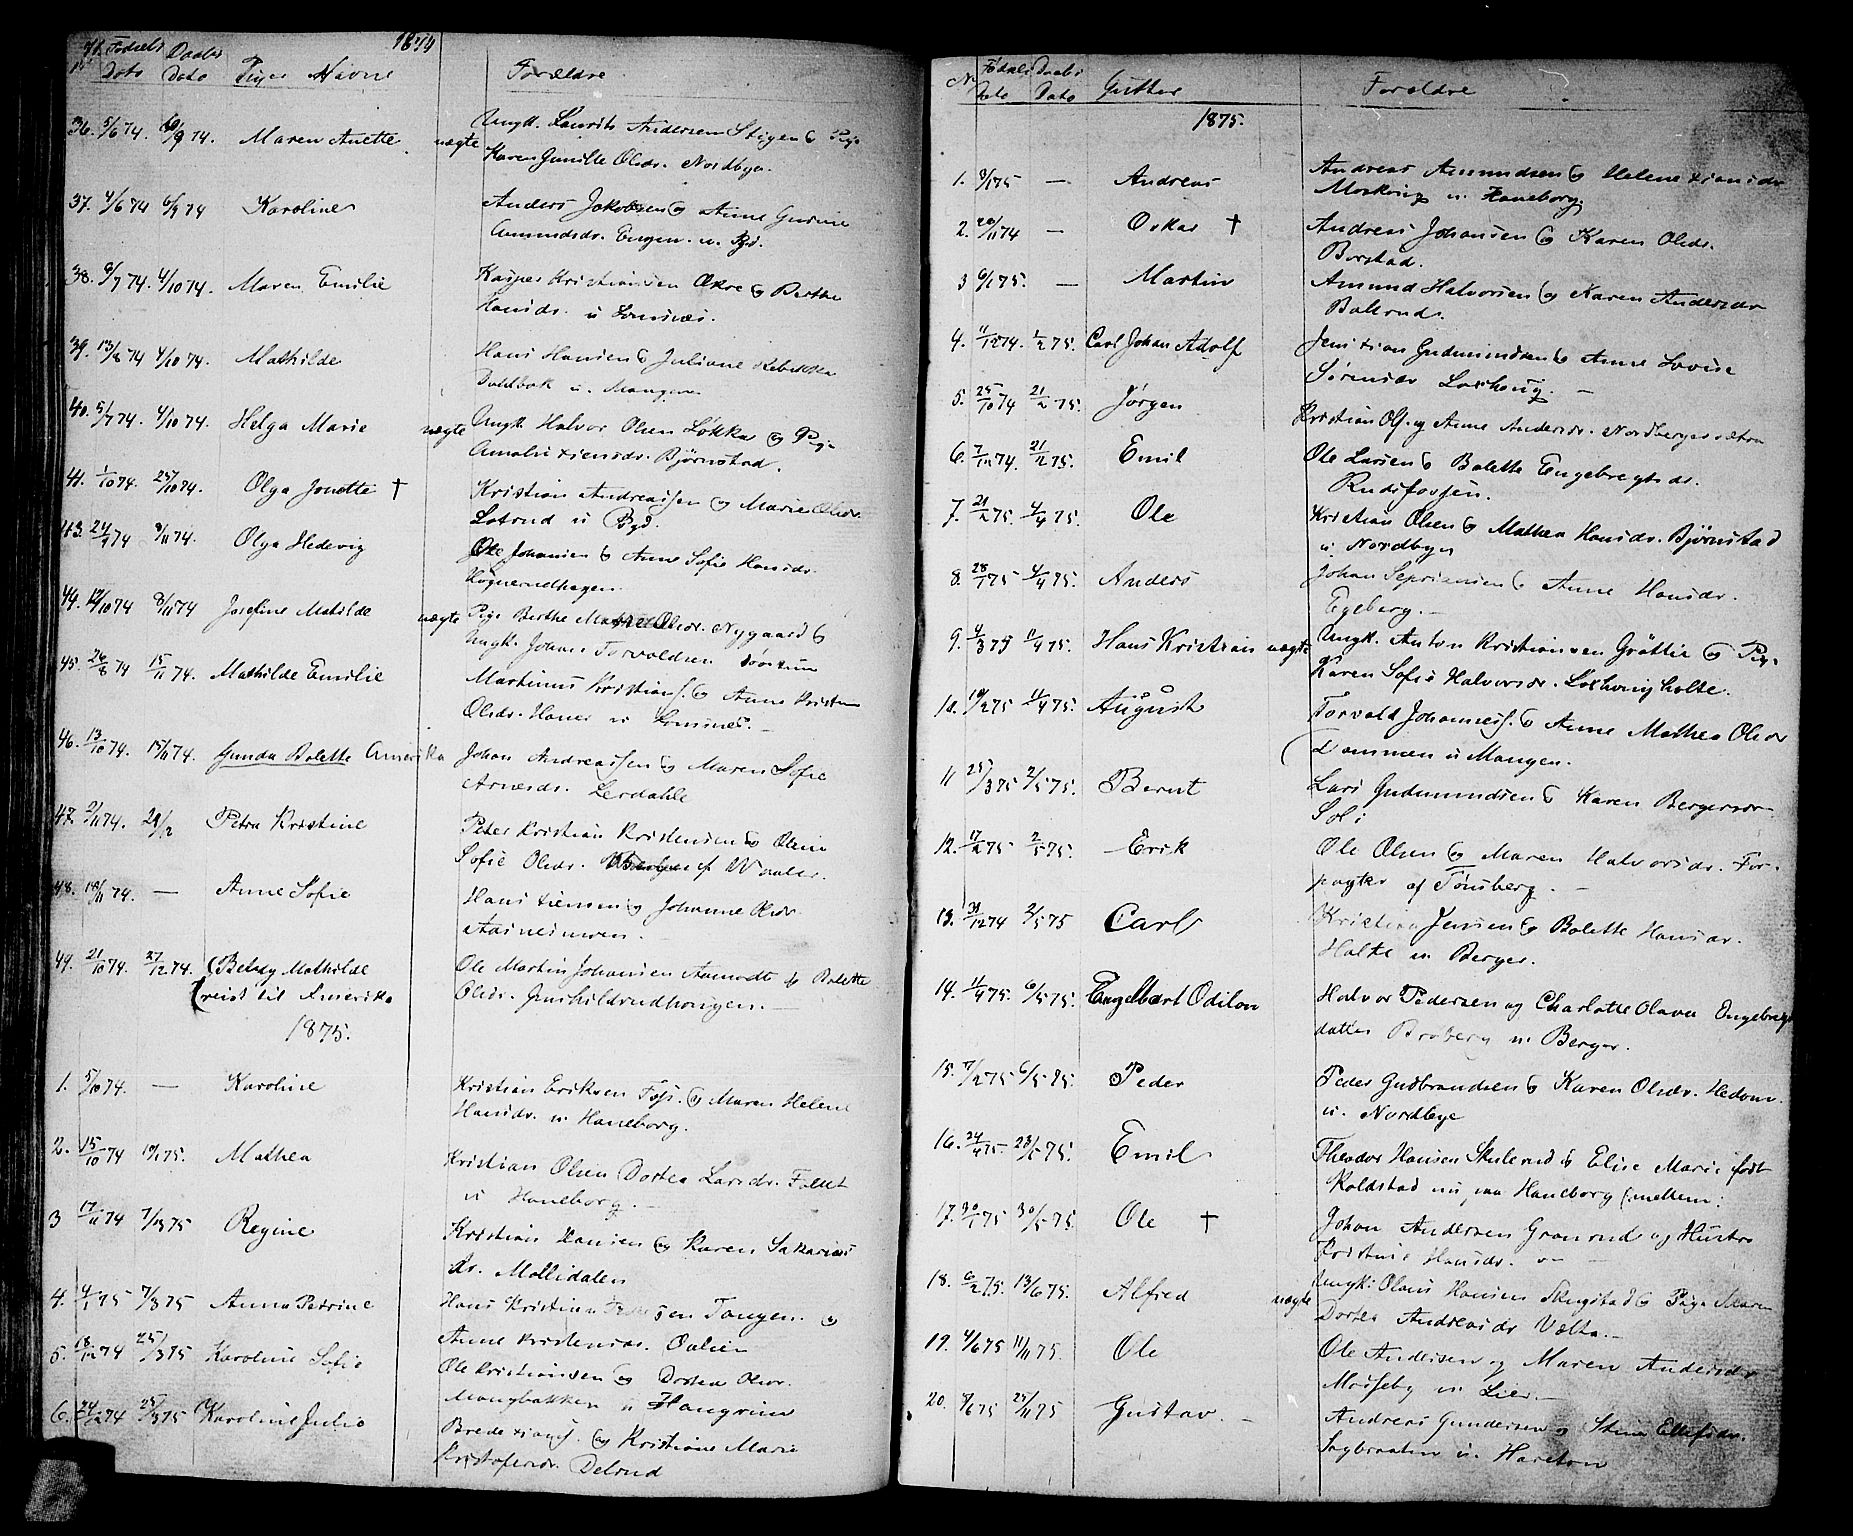 1874
No Fødsels Dato Daabs Dato Piger Navne Forældre
36. 5/6 74. 6/9 74. Maren Anette nægte Ungk. Laurits Andersen Stigen & Pige
Karen Gunille Olsdr. Nordbyen.
37. 4/6 74 6/9 74 Karoline Anders Jakobsen & Anne Gurine
Amundsdr. Engen u. Byd.
38. 9/7 74. 4/10 74. Maren Emilie Kasper Kristiansen Økre & Berthe
Hansdr. u
39. 13/8 74 4/10 74. Mathilde Hans Hansen & Juliane Rebekka
Dahlbak u. Mangen
40. 5/7 74. 4/10 74. Helga Marie nægte Ungk. Halvor Olsen Løkka & Pige
Amalie Xiansdr. Bjørnstad.
41. 1/10 74. 25/10 74. Olga Jonette † Kristian Andreassen og Marie Olsdr.
u Byd.
43. 24/9 74 8/11 74. Olga Hedevig Ole Johansen & Anne Sofie Hansdr.
44. 12/10 74 8/11 74 Josefine Matilde nægte Pige Berthe Mathea Olsdr. Nygaard &
Ungk. Johan Torvaldsen
45. 26/8 74 15/11 74. Mathilde Emilie Martinus Kristians. & Anne Kristine
Olsdr. Haner u
46. 13/10 74. 15/11 74. Gunda Bolette Amerika Johan Andreassen & Maren Sofie
Arnesdr. Lerdahle
47. 2/11 74. 28/12 Petra Kristine Peter Kristian Kristensen & Oline
Sofie Olsdr. af Waaler.
48. 18/11 74. — Anne Sofie Hans Xiansen & Johanne Olsdr.
49. 21/10 74. 27/12 74. (Betsey Mathilde Ole Martin Johansen Aamodt & Bolette
(reist til Amerika Olsdr. Gunhildrudhougen. —
1875.
1. 5/10 74. — Karoline Kristian Eriksen Foss. & Maren Helene
Hansdr. u Haneborg.
2. 15/10 74 10/1 75. Mathea Kristian Olsen Dortea Larsdr. Fallet
u Haneborg. —
3 17/11 74 7/3 75 Regine Kristian Hansen & Karen Sakarias
dr. Mollidalen
4. 4/1 75 7/3 75 Anna Petrine Hans Kristian Pedersen Tangen. &
Anne Kristensdr.
5. 18/12 74 25/3 75 Karoline Sofie Ole Kristiansen & Dortea Olsdr.
Mangbakken u Hangrim
6. 24/12 74 25/3 75 Karoline Julie Brede Xians. & Kristiane Marie
Kristofersdr. Delrud
N Fødsels Dato Daabs Dato Gutter Forældre
1875.
1. 8/1 75 — Andreas Andreas Amundsen & Helene Xiansdr
Moskrog u. Haneborg.
2. 20/11 74 — Oskar † Andreas Johansen & Karen Olsdr.
Borstad.
3 6/1 75. — Martin Amund Halvorsen & Karen Andersdr
Ballrud.
4. 11/12 74. 1/2 75. Carl Johan Adolf Jens Xian Gudmundsen & Anne Lovise
Sørensdr Loshoug. —
5. 25/10 74 21/2 75. Jørgen Kristian Ols. og Anne Andersdr. Nordbergsætra
6. 7/12 74. 21/2 75. Emil Ole Larsen & Bolette Engebregtsdr.
Rudsfossen.
7. 21/2 75. 4/4 75. Ole Kristian Olsen & Mathea Hansdr. Bjørnstad
u. Nordbyen
8. 28/1 75 4/4 75. Anders Johan Sepriansen & Anne Hansdr.
Egeberg. —
9. 4/3 75 11/4 75. Hans Kristian nægte Ungk. Anton Kristiansen Grøttie & Pige
Karen Sofie Halvorsdr. Loshougholte.
10. 10/2 75 11/4 75. August Torvald Johanness. & Anne Mathea Olsdr
Dammen u Mangen.
11 25/3 75 2/5 75. Bernt Lars Gudmundsen & Karen Bergersdr
Soli
12. 17/2 75 2/5 75. Erik Ole Olsen & Maren Halvorsdr. For-
pagter af Tønsberg. —
13. 31/12 74 2/5 75 Carl Kristian Jensen & Bolette Hansdr.
Holte u Berger.
14. 11/4 75. 6/5 75. Engelbert Odilon Halvor Pedersen og Charlotte Olava Engebregts
datter Broberg u. Berger.
15. 7/2 75 6/5 75. Peder Peder Gudbrandsen & Karen Olsdr. Hedom.
u. Nordbye
16. 24/4 75. 23/5 75. Emil Theodor Hansen Skulerud & Elise Marie født
Koldstad nu paa Haneborg (mellem:
17. 30/1 75 30/5 75. Ole † Johan Andersen Granrud og Hustro
Kristine Hansdr. —
18. 6/2 75. 13/6 75. Alfred nægte Ungk: Olaus Hansen Skugstad & Pige Maren
Dortea Andreasdr Vælta. —
19. 4/6 75 11/11 75. Ole Ole Andersen og Maren Andersdr
Mosseby u. Lier. —
20. 8/6 75 25/11 75 Gustav. — Andreas Gundersen og Stine Ellefsdr.
Sagbraaten u. Harston